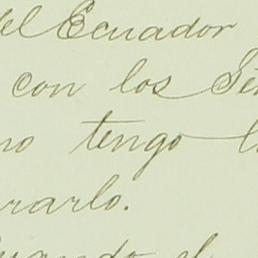 del Ecuador
con los
no tengo
rarlo.